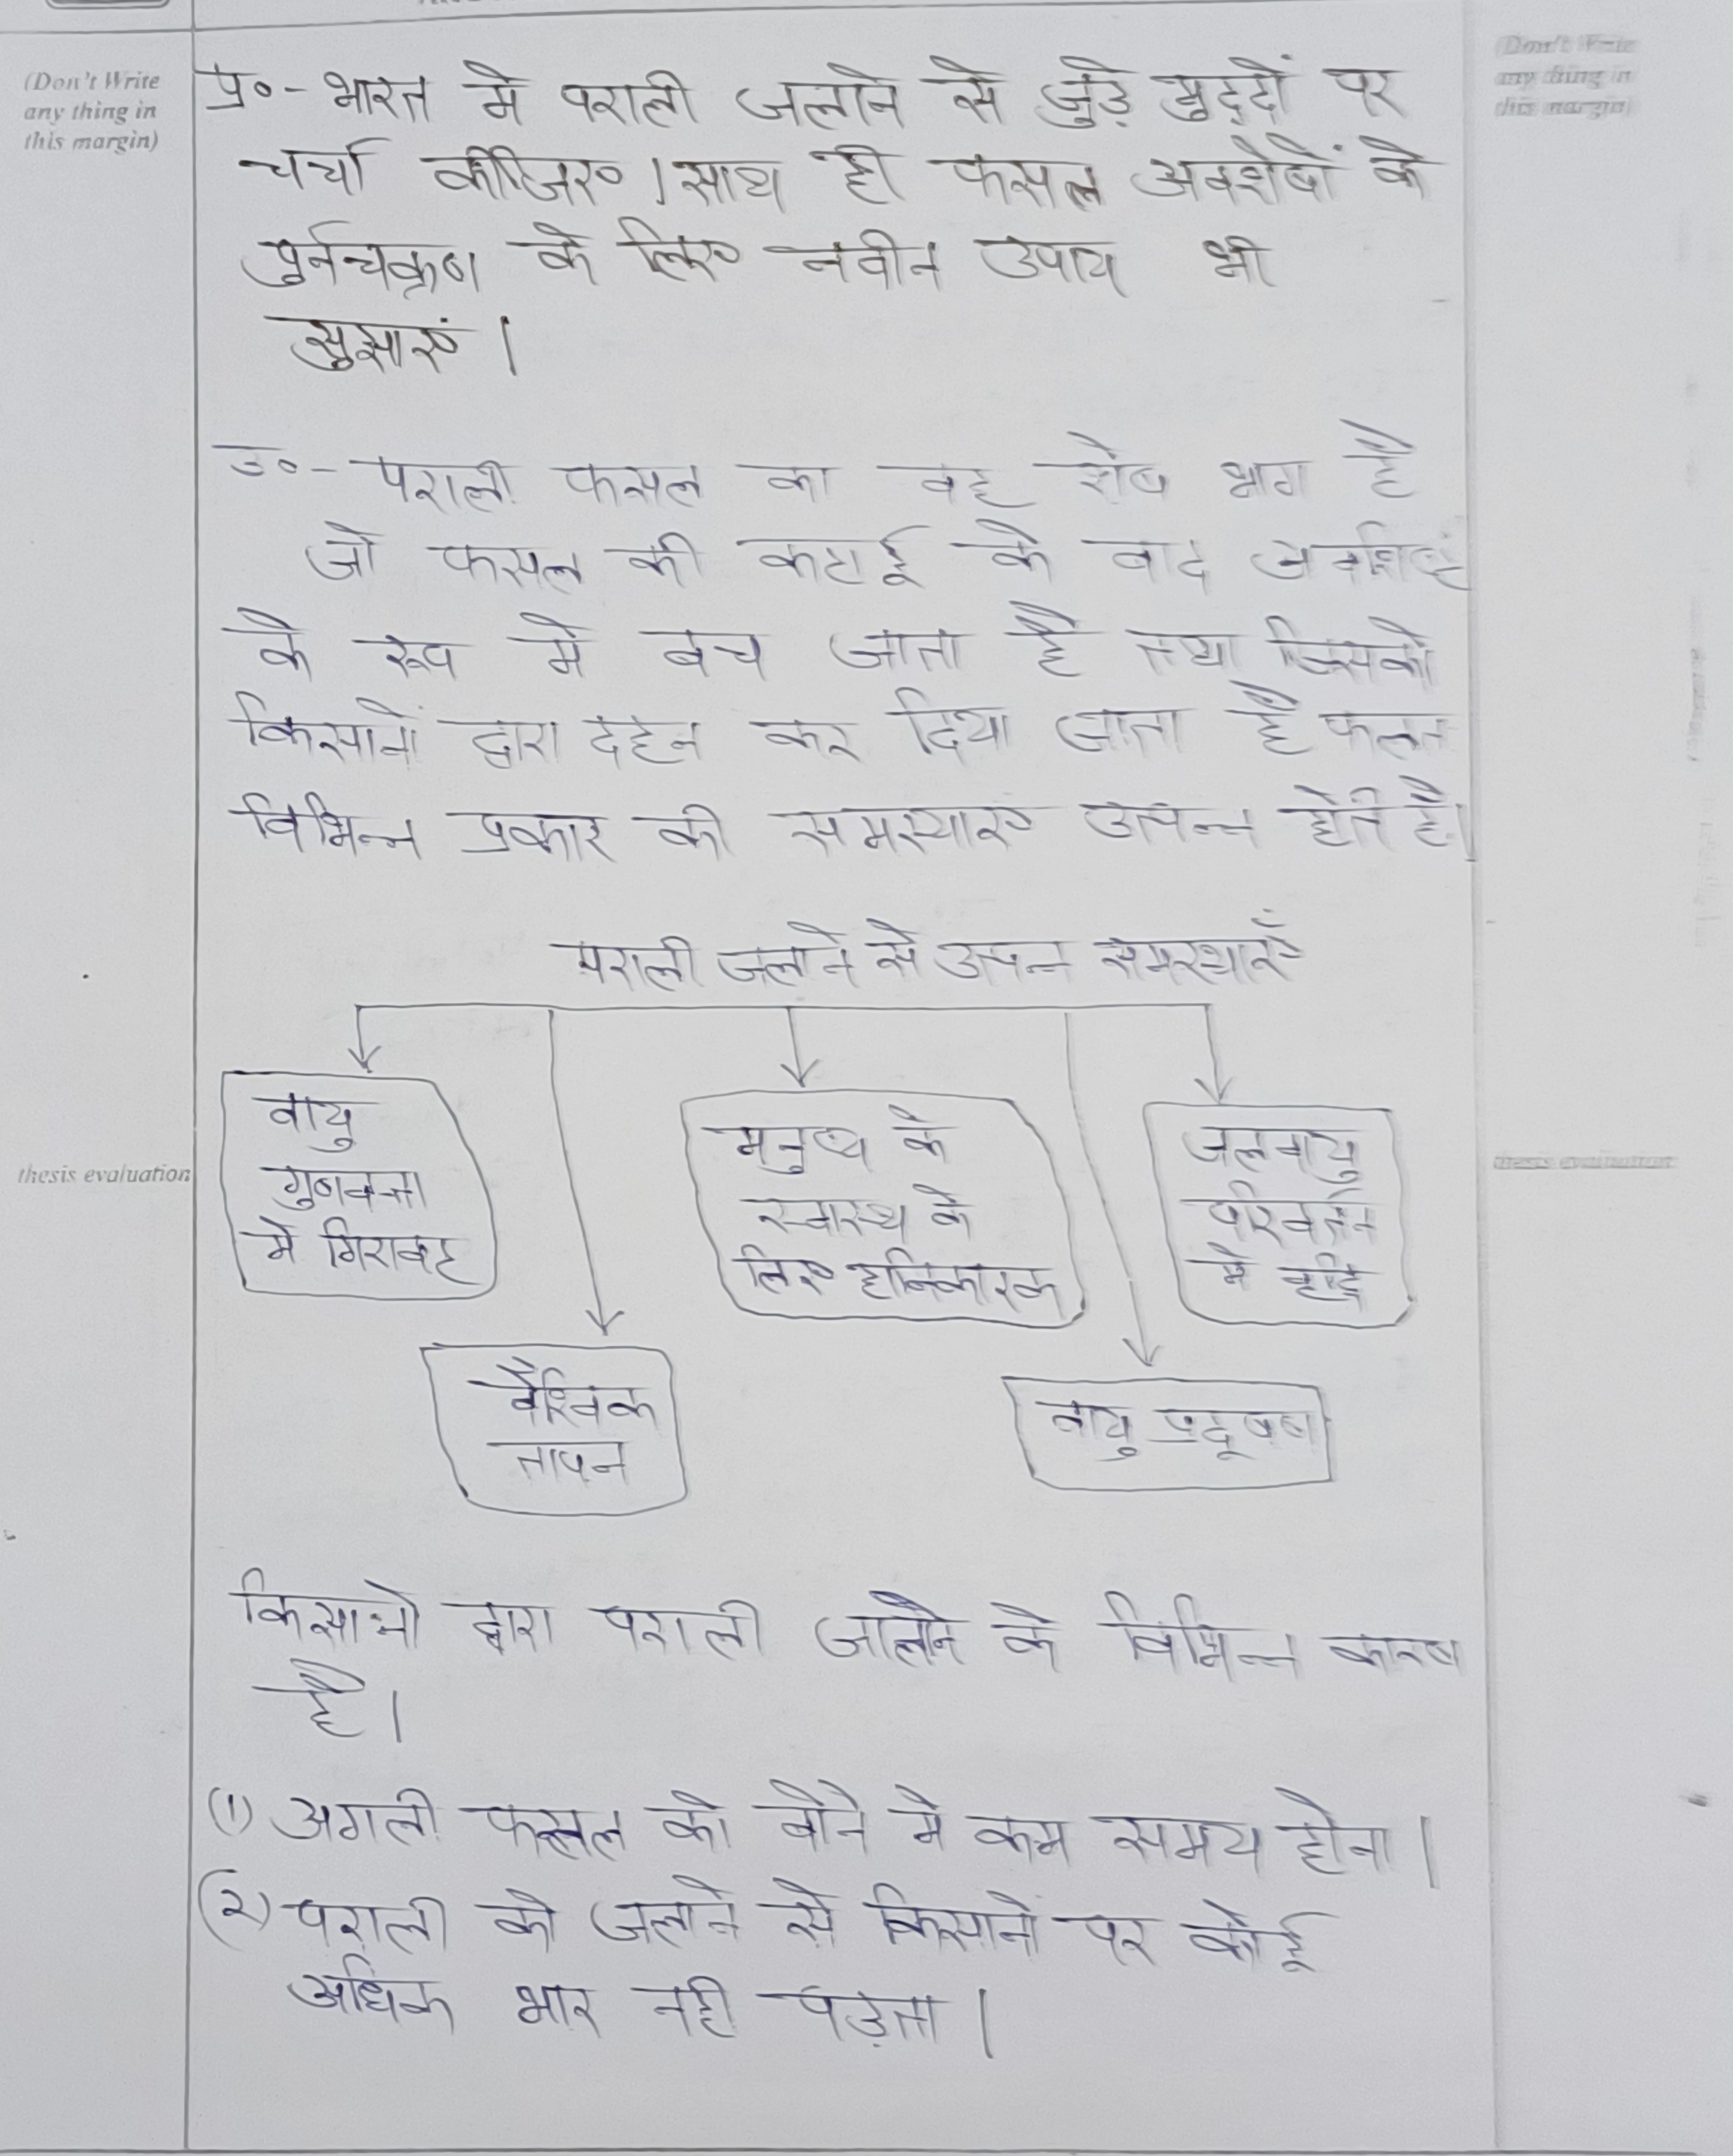 (Don't Write
any thing in
this margin)
(Don't Write
any thing in
this margin)
प्र०- भारत मे पराली जलाने से जुड़े मुद्दों पर
चर्चा कीजिए। साथ ही फसल अवशेषों के
पुर्नचक्रण के लिए नवीन उपाय भी
सुझाएं।
उ०- पराली फसल का वह शेष भाग है
जो फसल की कटाई के बाद अवशिष्ट
के रूप मे बच जाता है तथा जिसको
किसानों द्वारा दहन कर दिया जाता है फलत
विभिन्न प्रकार की समस्याए उत्पन्न होती है।
पराली जलाने से उत्पन्न समस्याएँ
वायु
गुणवत्ता
मे गिरावट
मनुष्य के
स्वास्थ के
लिए हानिकारक
जलवायु
परिवर्तन
मे वृद्धि
thesis evaluation
thesis evaluation
वैश्विक
तापन
वायु प्रदूषण
किसानो द्वारा पराली जालेने के विभिन्न कारण
है।
(1) अगली फसल को बोने मे कम समय होना।
(2) पराली को जलाने से किसानो पर कोई
अधिक भार नही पड़ता।